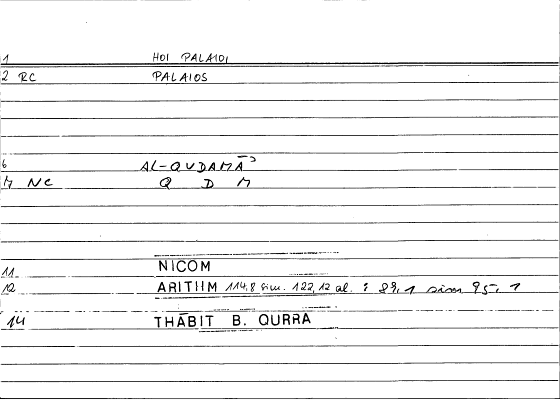 1 HOI PALAIOI
2 RC PALAIOS
6 AL-QUDAMĀʾ
M NC Q D M
11 NICOM
12 ARITHM 114,8 sim. 122,12 al. : 89,1 sim 95,1
14 THĀBIT B. QURRA